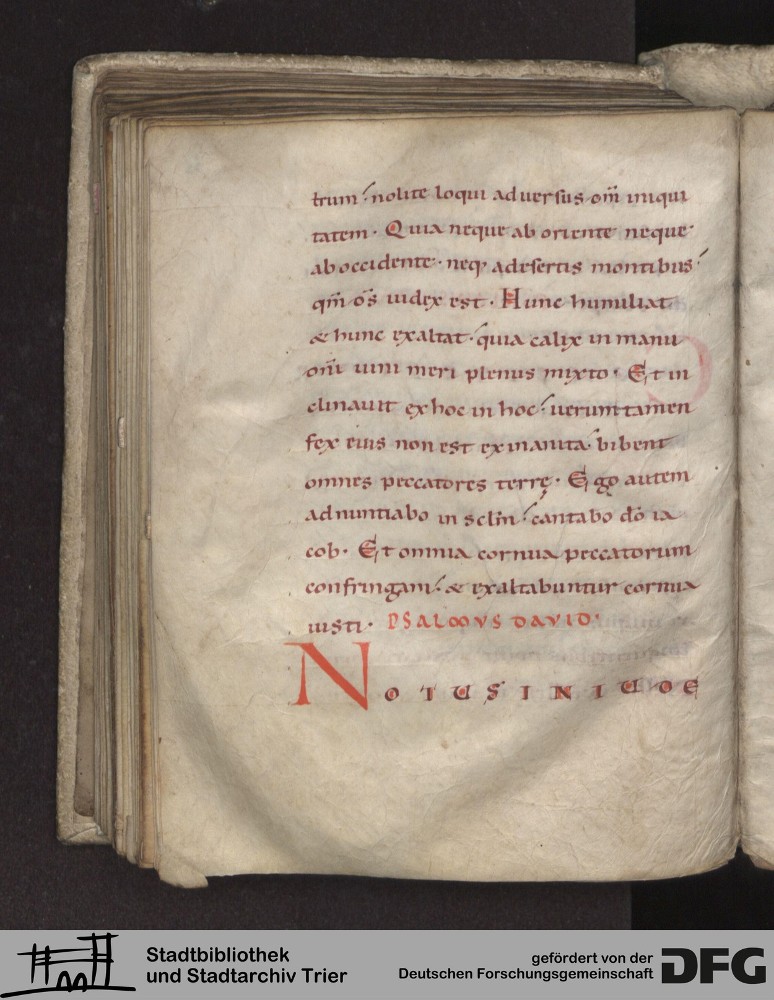 trum · nolite loqui adversus om̅ iniqui
tatem · Quia neque ab oriente neque
ab occidente · neq; a desertis montibus ·
qm̅ ds̅ iudex est · Hunc humiliat
& hunc exaltat · quia calix in manu
dn̅i uini meri plenus mixto · Et in
clinavit ex hoc in hoc · uerumtamen
fex eius non est exinanita · bibent
omnes peccatores terrę · Ego autem
adnuntiabo in sclm̅ · cantabo do̅ ia
cob · Et omnia cornua peccatorum
confringam · & exaltabuntur cornua
iusti · PSALMVS DAVID ·
NOTUS IN IUDE
Stadtbibliothek
und Stadtarchiv Trier
gefördert von der
Deutschen Forschungsgemeinschaft
DFG